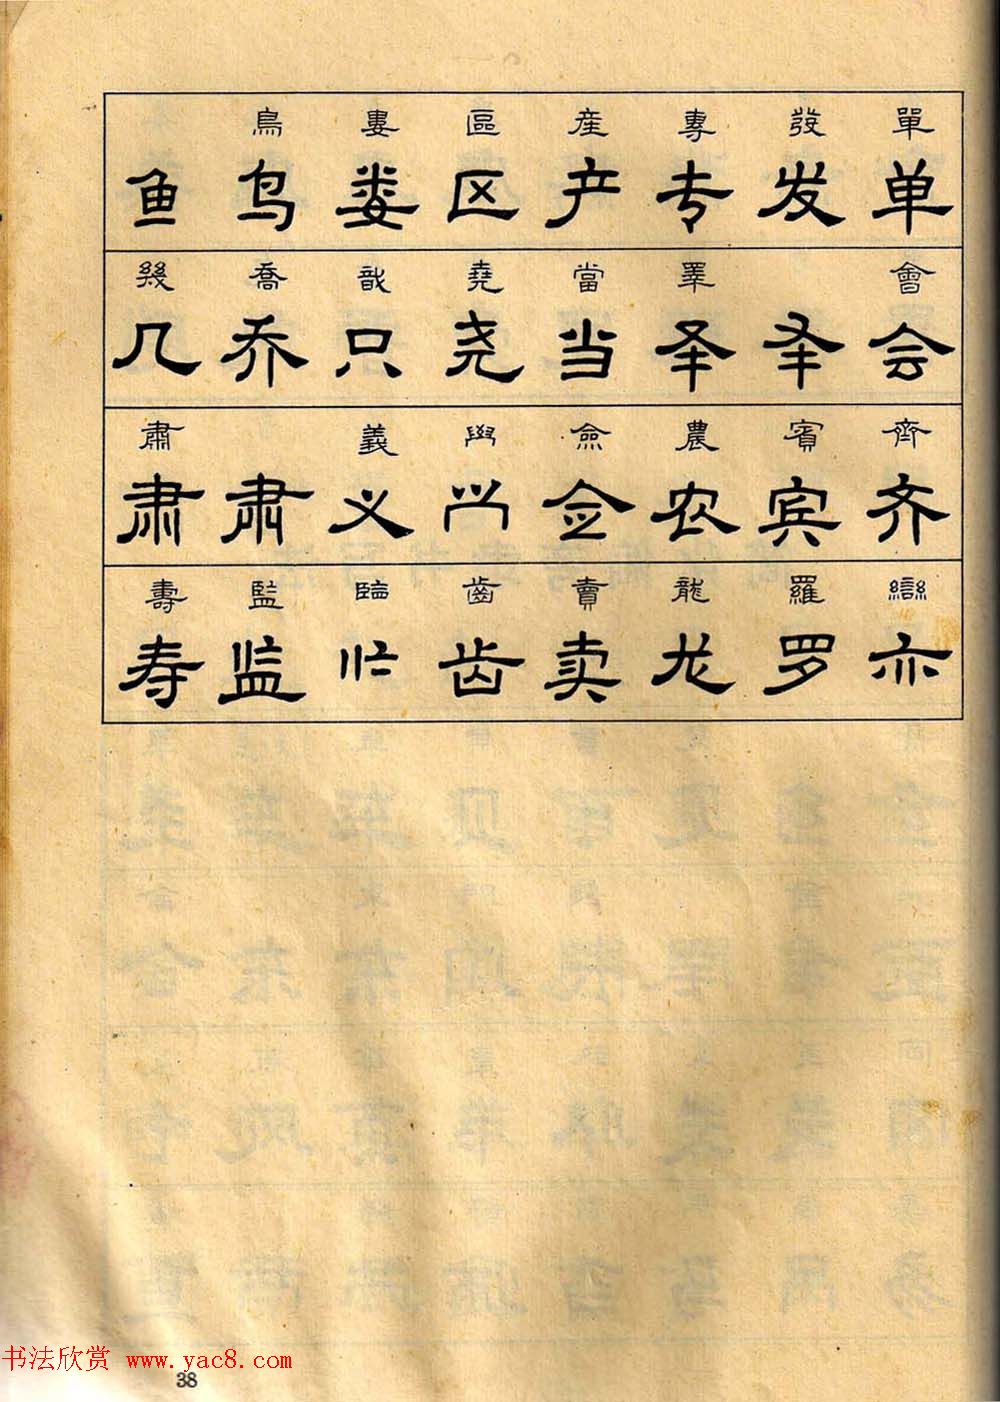 單發專産區婁鳥
单发专产区娄鸟鱼
會睪當堯戠喬幾
会𠬤𠬤当尧只乔几
齊賓農僉義肅
齐宾农佥义肃肃
䜌羅龍賣齒臨監壽
亦罗龙卖齿监寿
书法欣赏 www.yac8.com
38